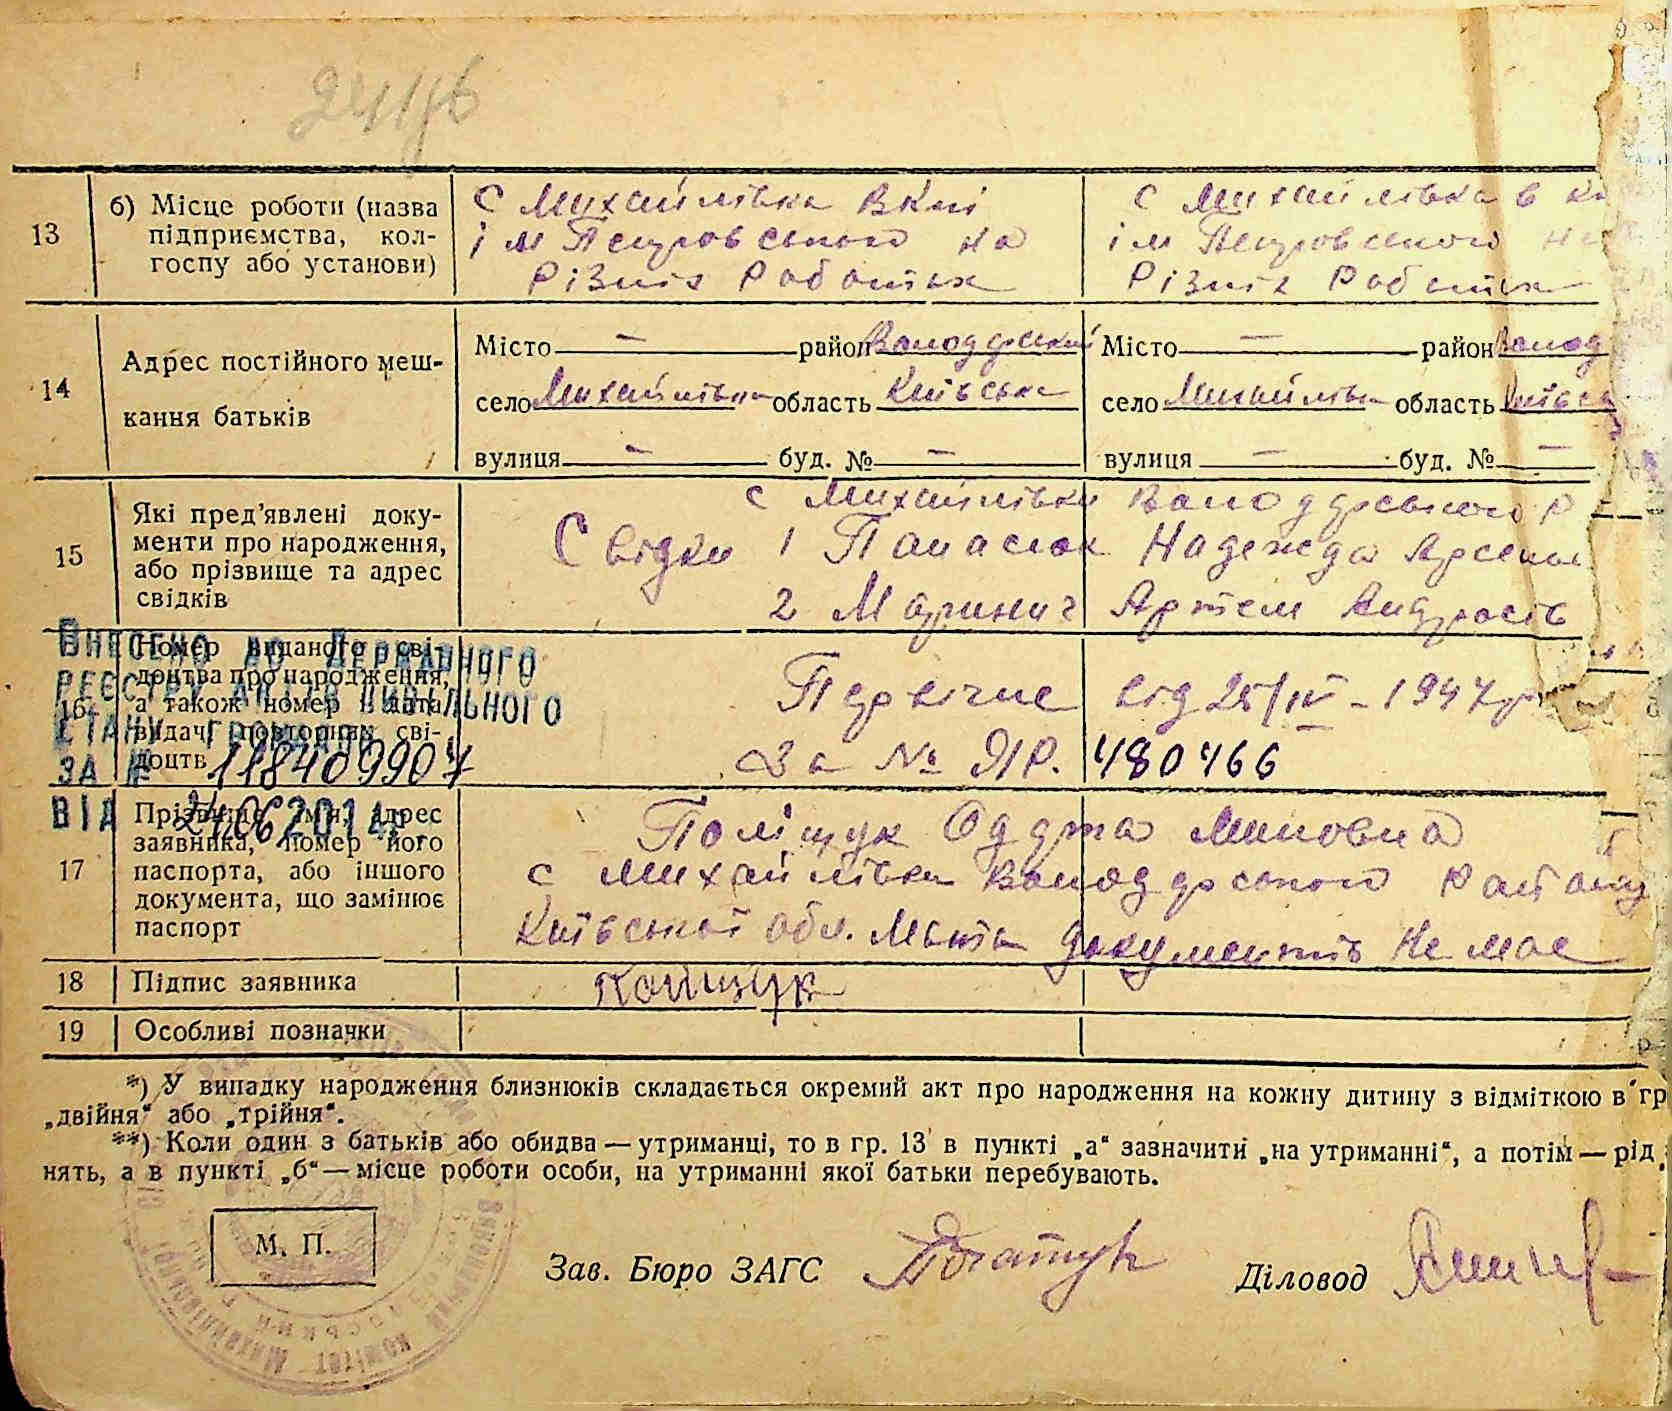 13
б) Місце роботи (назва
підприємства, кол-
госпу або установи)
с Михайлівка в к-ві
ім Петровського на
Різніх Работах
с Михайлівка в
ім Петровського
Різніх Работах
14
Адрес постійного меш-
кання батьків
Місто — район Володарський
село Михайлівка область Київська
вулиця — буд. № —
Місто — район Волод
село Михайлівка область Київсь
вулиця — буд. № —
15
Які пред'явлені доку-
менти про народження,
або прізвище та адрес
свідків
с Михайлівки Володарського р
Свідки 1 Панасюк Надежда
2 Маринич Артем
16
Номер виданого сві-
доцтва про народження,
а також номер і дата
видачі повторних сві-
доцтв
Первічне від 25/IV – 1947р
За № ЯР. 480466
Внесено до Державного
реєстру актів цивільного
стану громадян
за № 11840990
від 24.06 2014р.
17
Прізвище, ім'я, адрес
заявника, номер його
паспорта, або іншого
документа, що замінює
паспорт
Поліщук Миновна
с Михайлівка Володарського району
Київської обл. Мать документів не має
18
Підпис заявника
Поліщук
19
Особливі позначки
*) У випадку народження близнюків складається окремий акт про народження на кожну дитину з відміткою в гр
„двійня“ або „трійня“.
**) Коли один з батьків або обидва — утриманці, то в гр. 13 в пункті „а“ зазначити „на утриманні“, а потім — рід
нять, а в пункті „б“ — місце роботи особи, на утриманні якої батьки перебувають.
М. П.
Зав. Бюро ЗАГС
Діловод